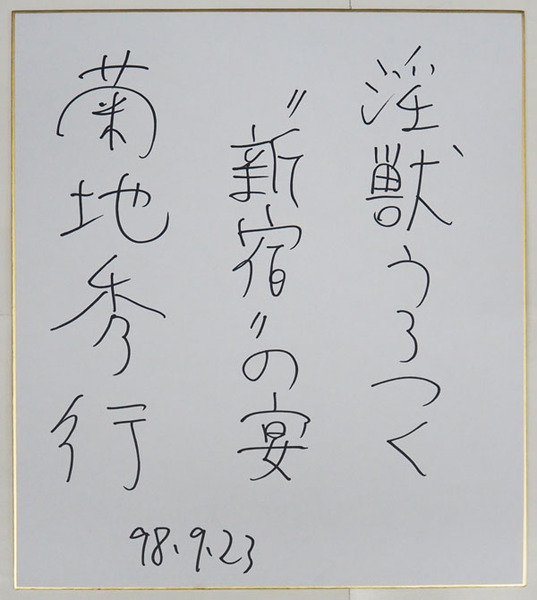 淫獣うろつく
〃新宿〃の宴
菊地秀行
98.9.23